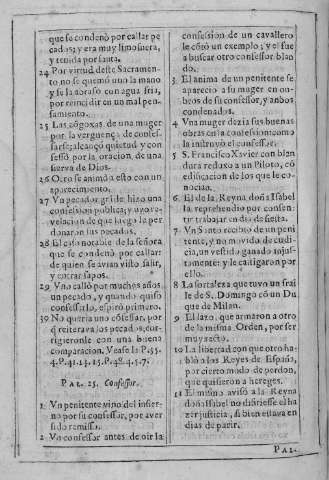 que se condenò por callar pe
cados; y era muy limosnera,
y tenida por santa.
24 Por virtud deste Sacramen-
to no se quemò vno la mano
y se la abrasò con agua fria,
por reincidir en vn mal pen-
samiento.
25 Las cõgoxas de vna muger
por la verguença de confes-
sarse; alcançò quietud y con
fessò por la oracion, de vna
sierva de Dios.
26 Otro se animò a esto con vn
aparecimiento.
27 Vn pecador grãde hizo vna
confession publica; y uvo re-
velacion de que luego le per
donaron sus pecados.
28 El caso notable de la señora
que se condenò por callar:
de quien se avian visto salir,
y entrar sapos.
29 Vno callò por muchos años
vn pecado, y quando quiso
confessarlo, espirò primero.
30 No queria vno cõfessar, por
q̃ reiterava los pecados; cor-
rigieronle con una buena
comparacion. Vease la P. 35.
4. P. 41. 13. 15. P. 46. 4. 5. 7.
PAL. 25. Confessor.
1 Vn penitente vino del infier-
no por su confessor, por aver
sido remisso.
2 Vn confessor antes de oir la
confession de vn cavallero
le cõtò un exemplo; y el fue
a buscar otro confessor blan
do.
3 El anima de vn penitente se
apareciò a su muger en on-
bros de su confessor, y anbos
condenados.
4 Vna muger dezia sus buenas
obras en la confession: como
la instruyò el confessor.
5 S. Francisco Xavier con blan
dura reduxo a un Piloto, cõ
edificacion de los que le co-
nocian.
6 El de la Reyna doña Isabel
la reprehendio por consen-
tir trabajar en dia de fiesta.
7 Vn Santo recibio de vn peni
tente, y no movido de cudi-
cia, vn vestido ganado injus-
tamente: y le castigaron por
ello.
8 La fortaleza que tuvo un frai
le de S. Domingo cõ un Du
que de Milan.
9 El lazo, que armaron a otro
de la misma Orden, por ser
muy recto.
10 La libertad con que otro ha-
blò a los Reyes de España,
por cierto modo de perdon,
que quisieron a hereges.
11 El mismo avisò a la Reyna
doña Isabel no difiriesse el ha
zer justicia, si bien estava en
dias de parir.
PAL.